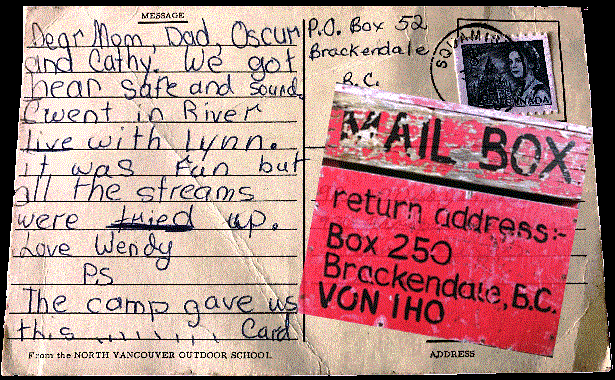 MESSAGE
Dear Mom, Dad, Oscur
and Cathy. We got
hear safe and sound.
I went in River
live with Lynn.
it was fun but
all the streams
were tried up.
Love Wendy
PS
The camp gave us
this ......... Card
From the NORTH VANCOUVER OUTDOOR SCHOOL
P.O. Box 52
Brackendale
B.C.
SQUAMISH
CANADA
MAIL BOX
return address:-
Box 250
Brackendale, B.C.
VON 1HO
ADDRESS